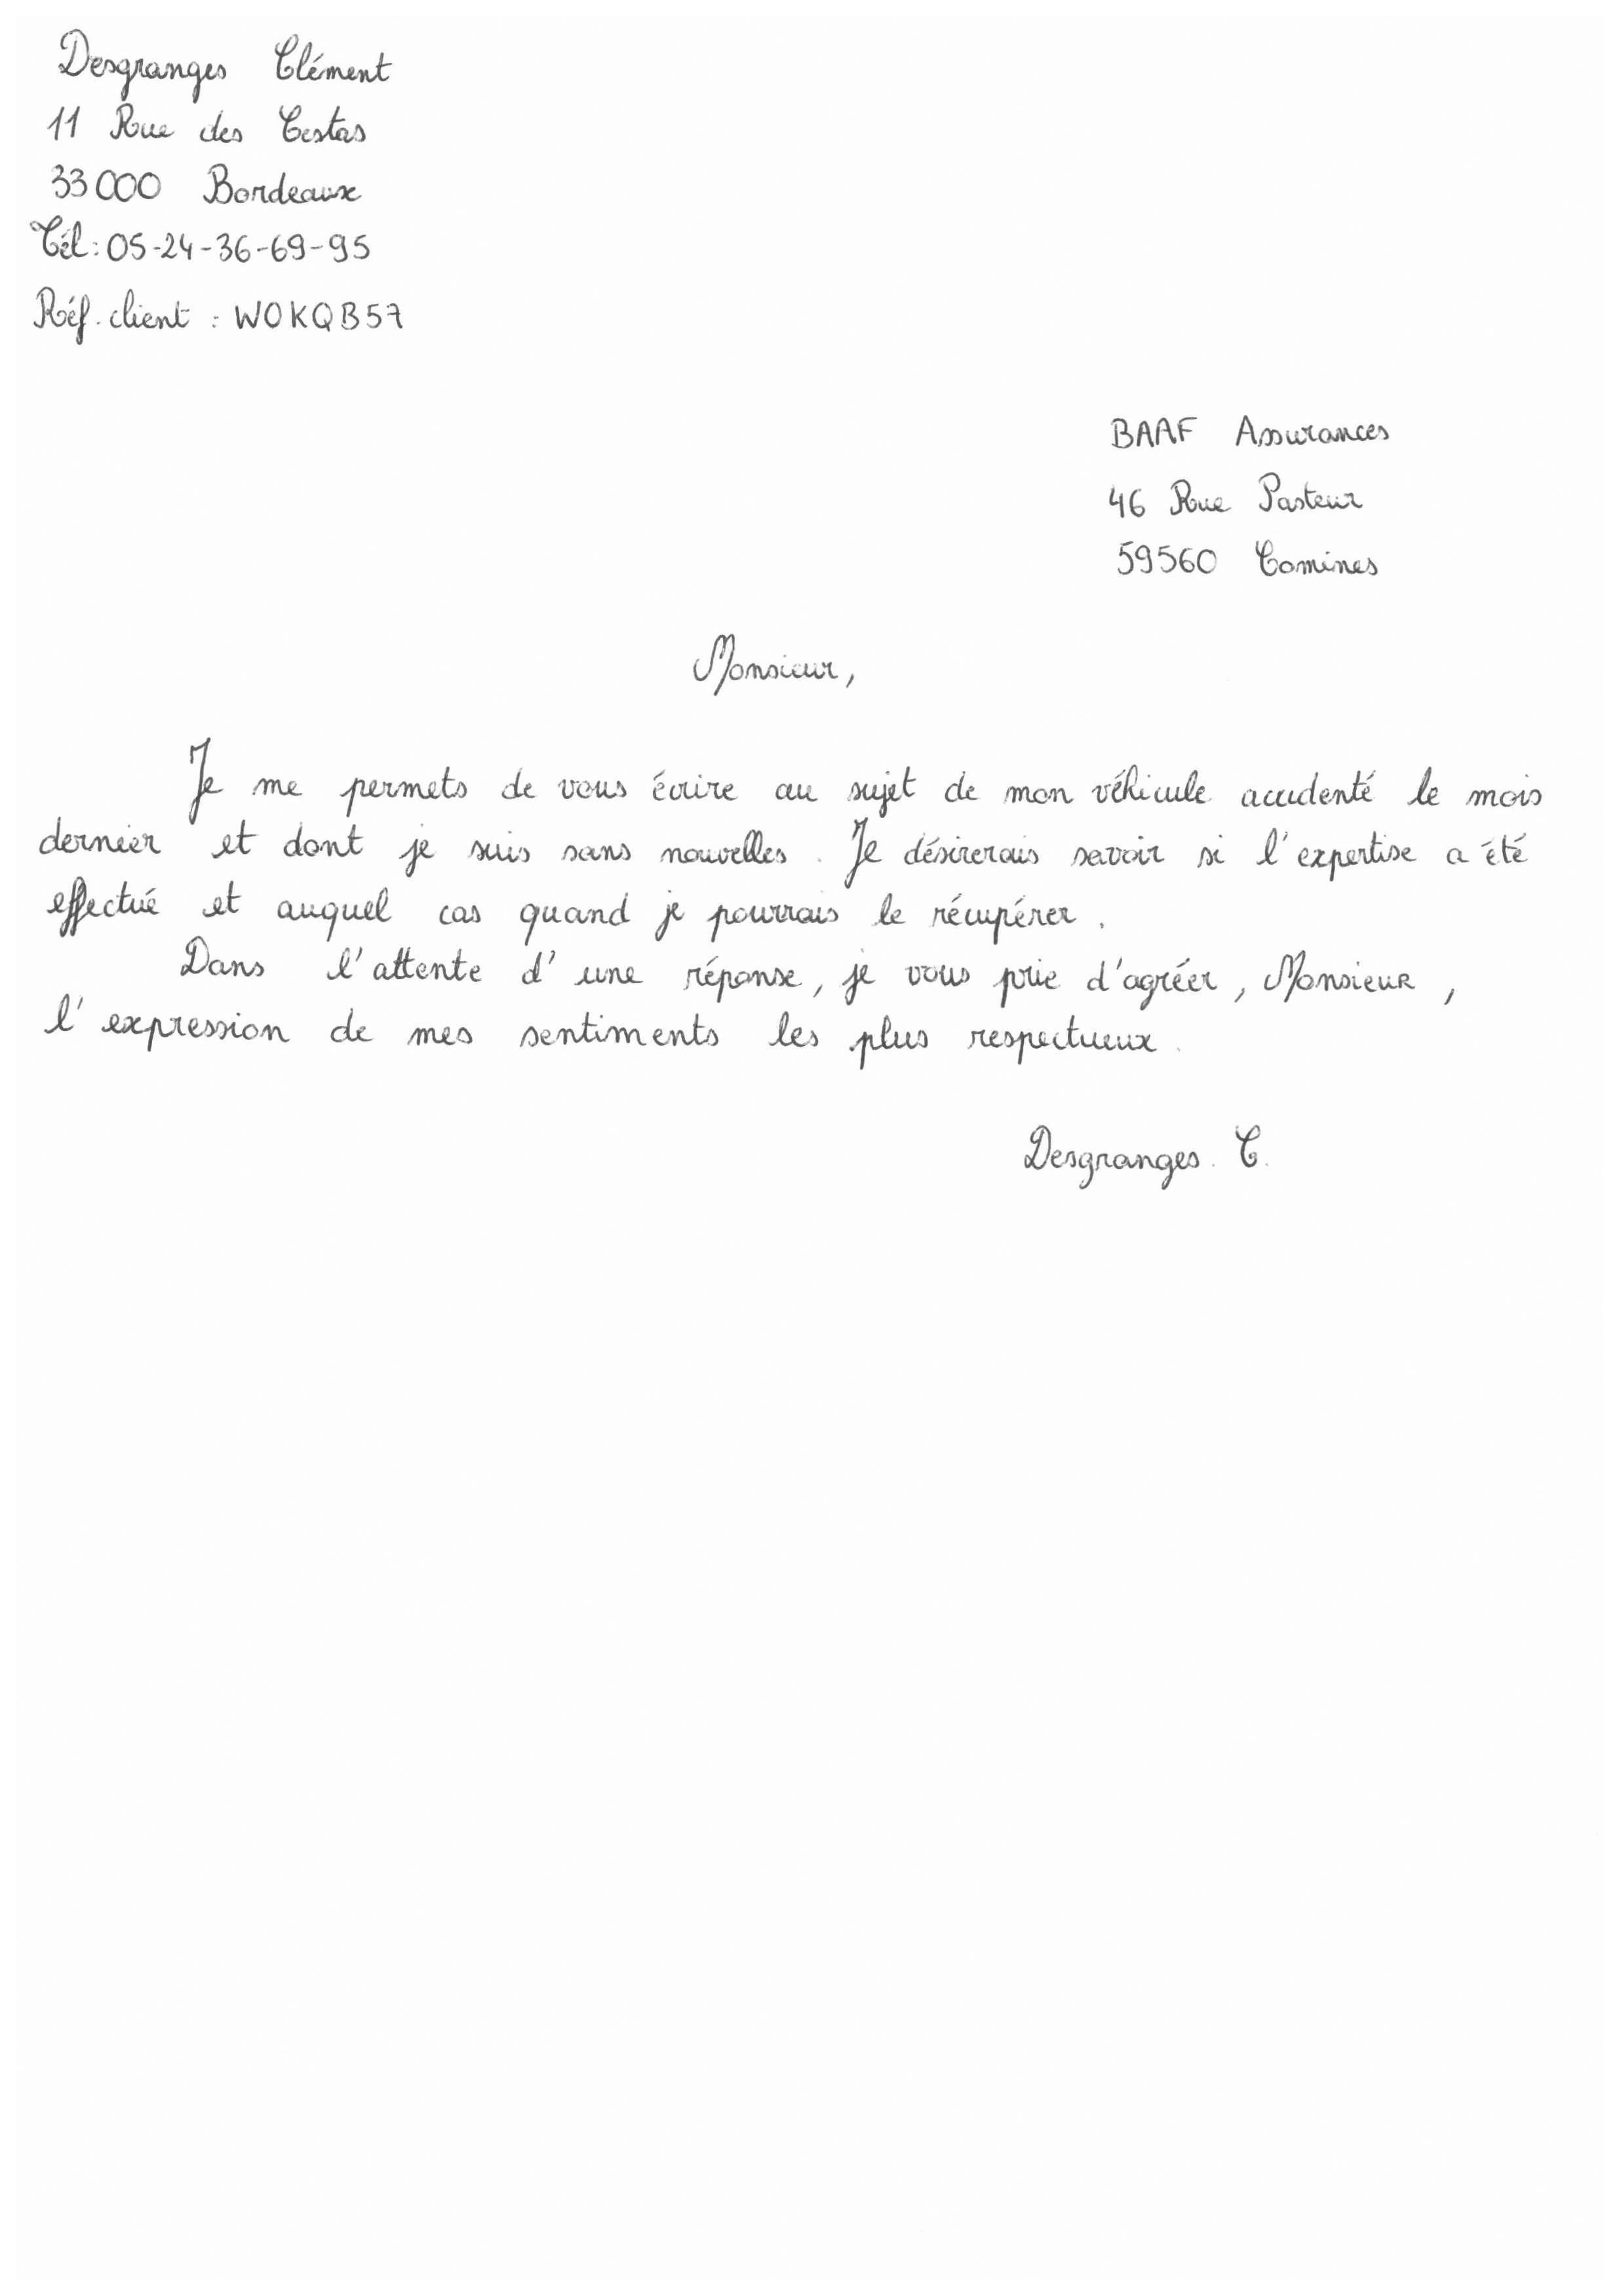 Desgranges Clément
11 Rue des Cestas
33000 Bordeaux
Tél : 05-24-36-69-95
Réf. client : WOKQB57
BAAF Assurances
46 Rue Pasteur
59560 Comines
Monsieur,
Je me permets de vous écrire au sujet de mon véhicule accidenté le mois
dernier et dont je suis sans nouvelles. Je désirerais savoir si l'expertise a été
effectué et auquel cas quand je pourrais le récupérer.
Dans l'attente d'une réponse, je vous prie d'agréer, Monsieur,
l'expression de mes sentiments les plus respectueux.
Desgranges. C.